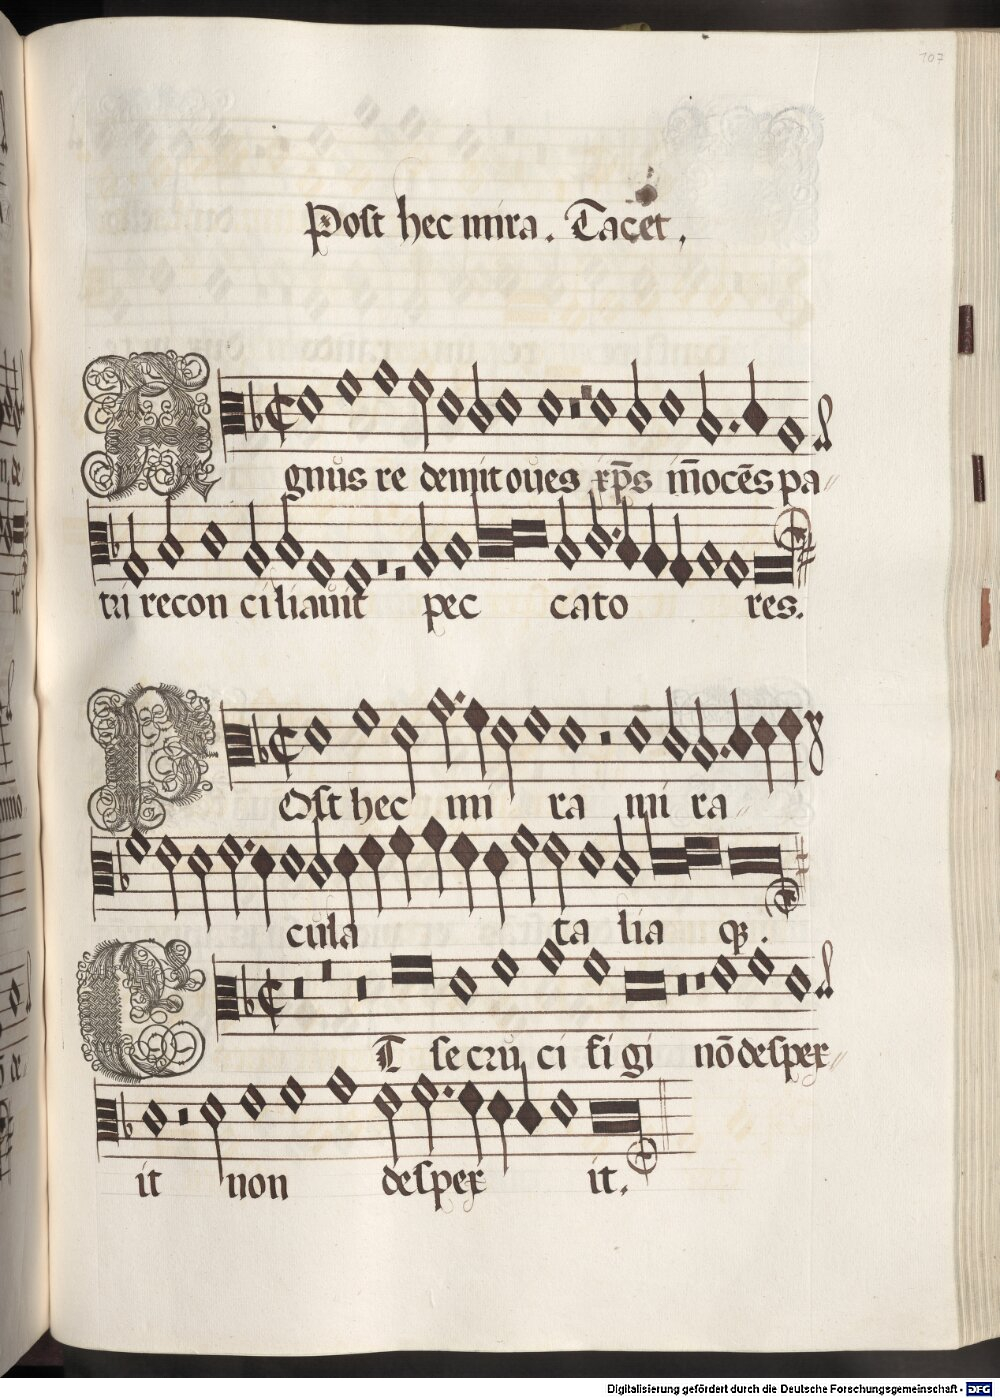 107
Post hec mira. Tacet.
Agnus redemit oues xp̄s iñocēs pa
tri reconciliauit peccatores.
Post hec mira mira
cula talia qʒ.
Et se crucifigi nō despex
it non despexit.
Digitalisierung gefördert durch die Deutsche Forschungsgemeinschaft - DFG